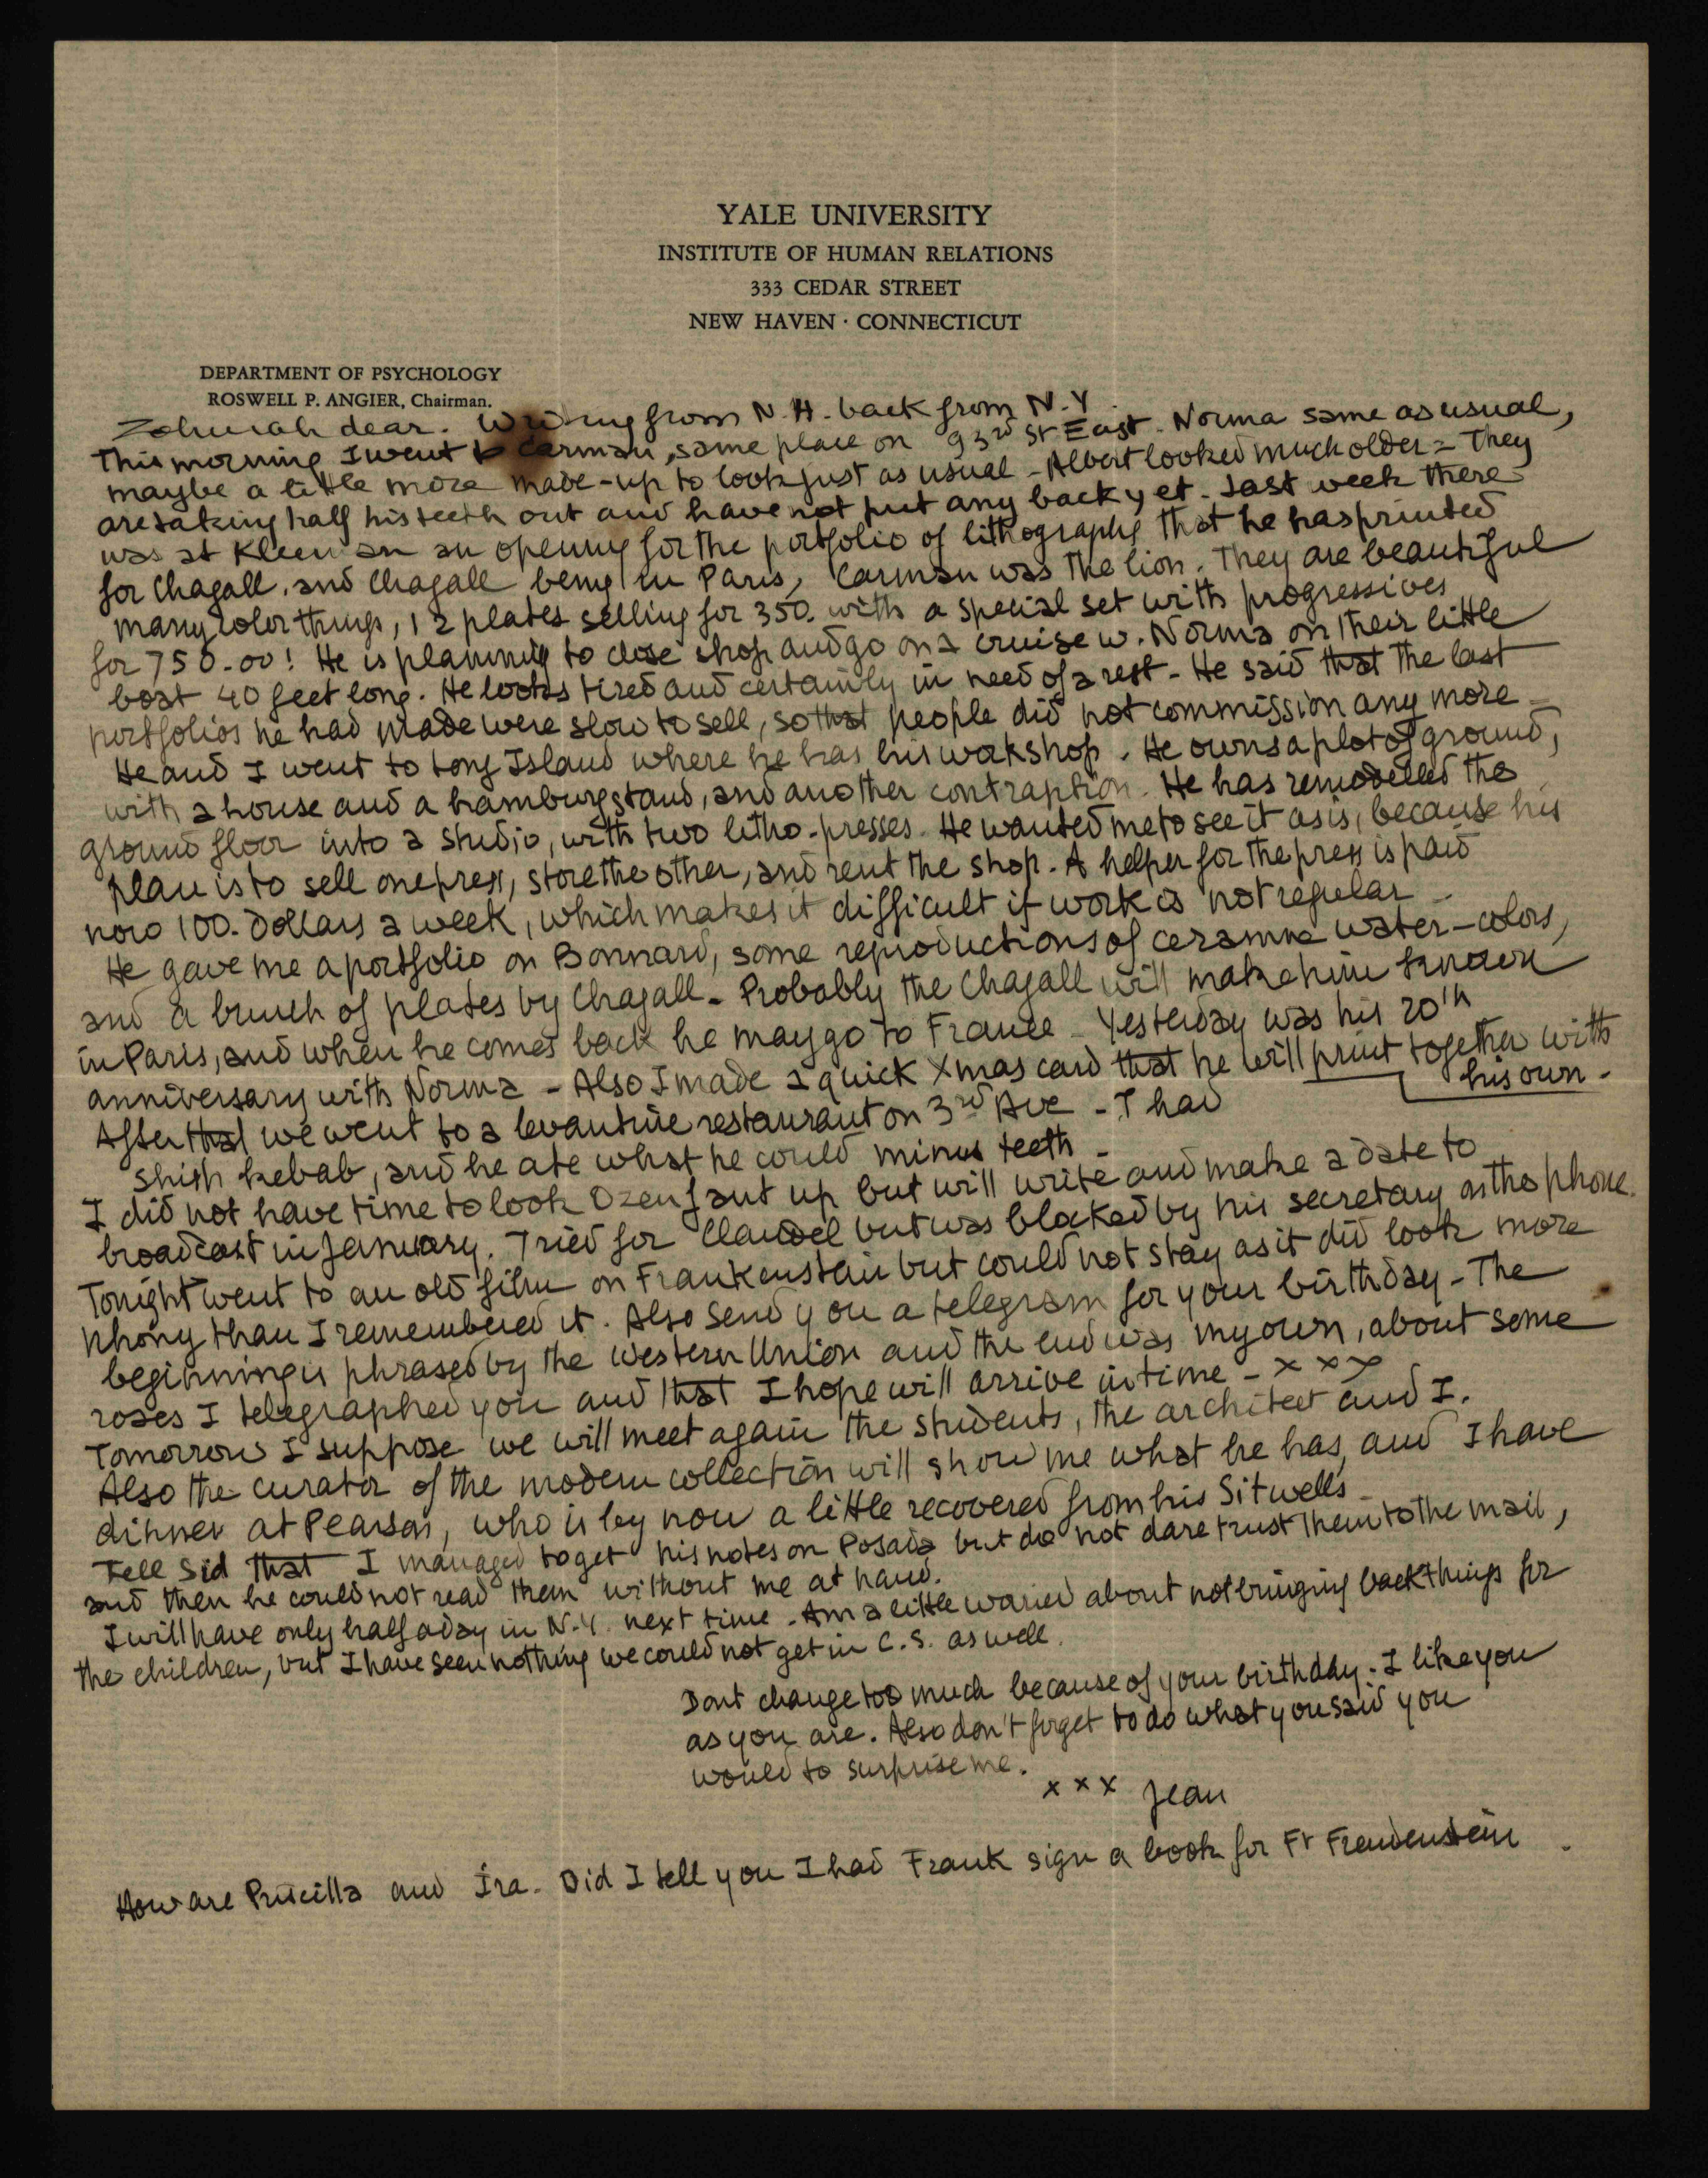 YALE UNIVERSITY
INSTITUTE OF HUMAN RELATIONS
333 CEDAR STREET
NEW HAVEN · CONNECTICUT
DEPARTMENT OF PSYCHOLOGY
ROSWELL P. ANGIER, Chairman.
Zohmah dear. Writing from N.H. back from N.Y
This morning I went to Carman, same place on 93rd St East. Norma same as usual,
maybe a little more made-up to look just as usual - Albert looked much older = They
are taking half his teeth out and have not put any back yet. Last week there
was at Kleeman an opening for the portfolio of lithographs that he has printed
for Chagall, and Chagall being in Paris, Carman was the lion. They are beautiful
many color things, 12 plates selling for 350. with a special set with progressives
for 750.00! He is planning to close shop and go on a cruise w. Norma on their little
boat 40 feet long. He looks tired and certainly in need of a rest - He said that the last
portfolios he had made were slow to sell, so that people did not commission any more -
He and I went to Long Island where he has his workshop. He owns a plot of ground,
with a house and a hamburg stand, and another contraption. He has remodelled the
ground floor into a studio, with two litho-presses. He wanted me to see it as is, because his
plan is to sell one press, store the other, and rent the shop. A helper for the press is paid
now 100. dollars a week, which makes it difficult if work is not regular -
He gave me a portfolio on Bonnard, some reproductions of ceramic water-colors,
and a bunch of plates by Chagall - Probably the Chagall will make him known
in Paris, and when he comes back he may go to France - Yesterday was his 20th
anniversary with Norma - Also I made a quick Xmas card that he will print together with
his own -
After that we went to a levantine restaurant on 3rd Ave - I had
shish kebab, and he ate what he could minus teeth -
I did not have time to look Ozenfant up but will write and make a date to
broadcast in January. Tried for Claudel but was blocked by his secretary on the phone.
Tonight went to an old film on Frankenstein but could not stay as it did look more
phony than I remembered it. Also send you a telegram for your birthday - The
beginning is phrased by the Western Union and the end was my own, about some
roses I telegraphed you and that I hope will arrive in time - x x x
Tomorrow I suppose we will meet again the students, the architect and I.
Also the curator of the modern collection will show me what he has, and I have
dinner at Pearson, who is by now a little recovered from his Sitwells -
Tell Sid that I managed to get his notes on Posada but do not dare trust them to the mail,
and then he could not read them without me at hand.
I will have only half a day in N.Y. next time - Am a little waried about not bringing back things for
the children, but I have seen nothing we could not get in C.S. as well.
Dont change too much because of your birthday. I like you
as you are. Also don't forget to do what you said you
would to surprise me.
x x x Jean
How are Priscilla and Ira. Did I tell you I had Frank sign a book for Fr Freudenstein